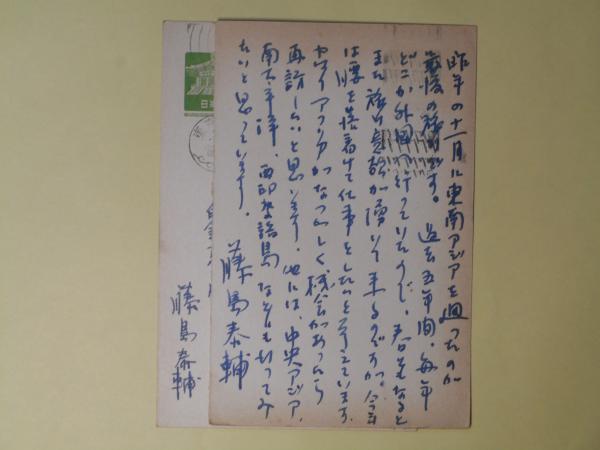 昨年の十一月に東南アジアを廻ったのが
最後の旅行です。過去五年間、毎年
どこか外国へ行っていたので、春ともなると
また旅の意欲が湧いて来るのですが、今年
は腰を落着けて仕事をしたいと考えています。
アフリカがなつかしく機会があったら
再訪したいと思います。他には、中央アジア、
南太平洋、西印度諸島などにも行ってみ
たいと思っています。
藤島泰輔
藤島泰輔
日本